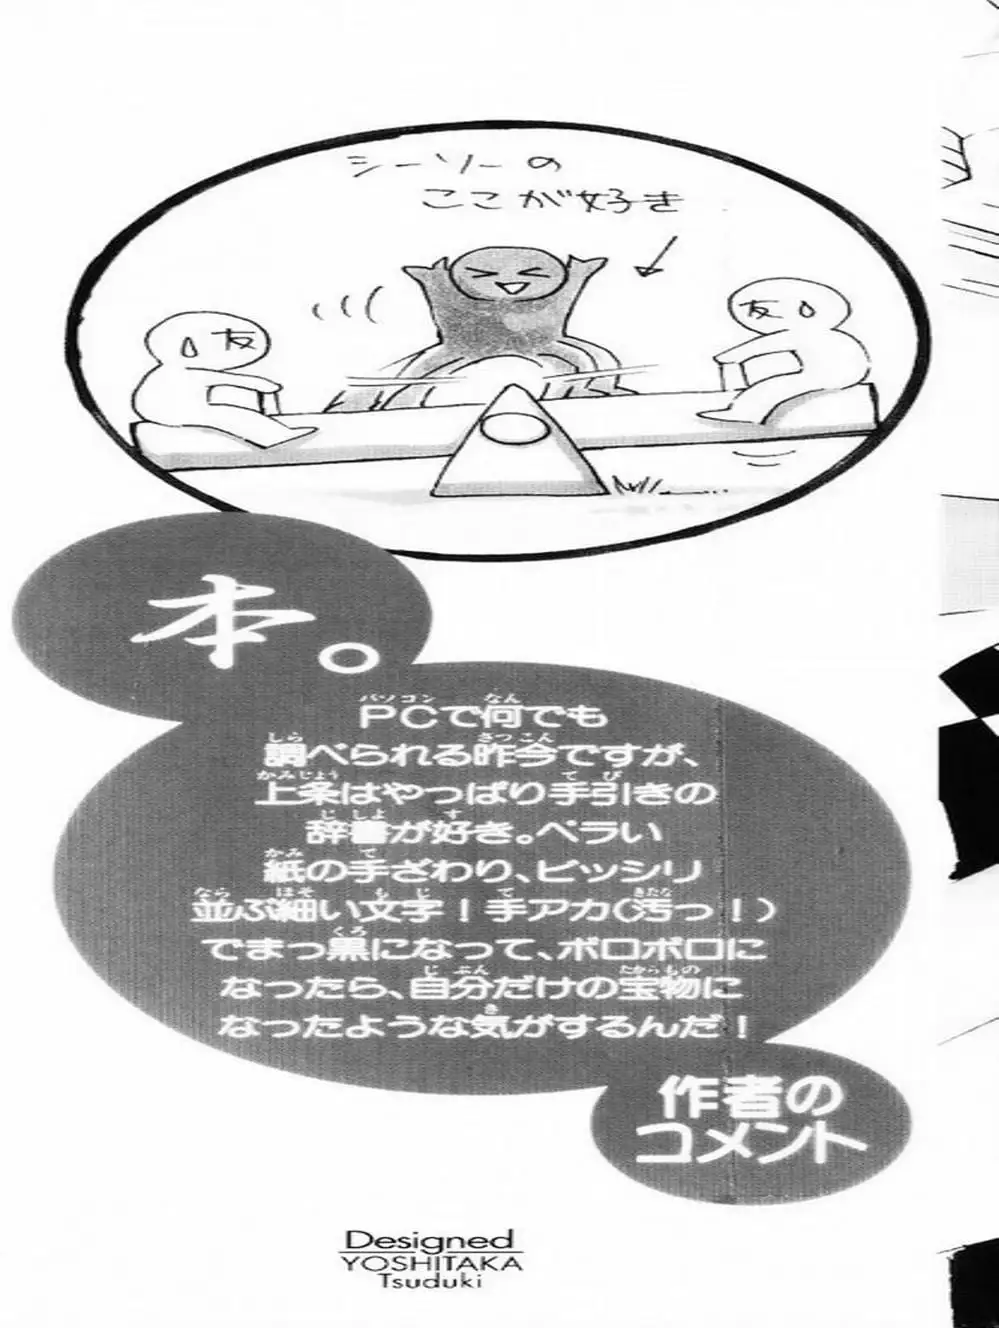 シーソーの
ここが好き
友
友
本。
PCで何でも
調べられる昨今ですが、
上条はやっぱり手引きの
辞書が好き。ペラい
紙の手ざわり、ビッシリ
並ぶ細い文字！手アカ(汚っ！)
でまっ黒になって、ボロボロに
なったら、自分だけの宝物に
なったような気がするんだ！
作者の
コメント
Designed
YOSHITAKA
Tsuduki